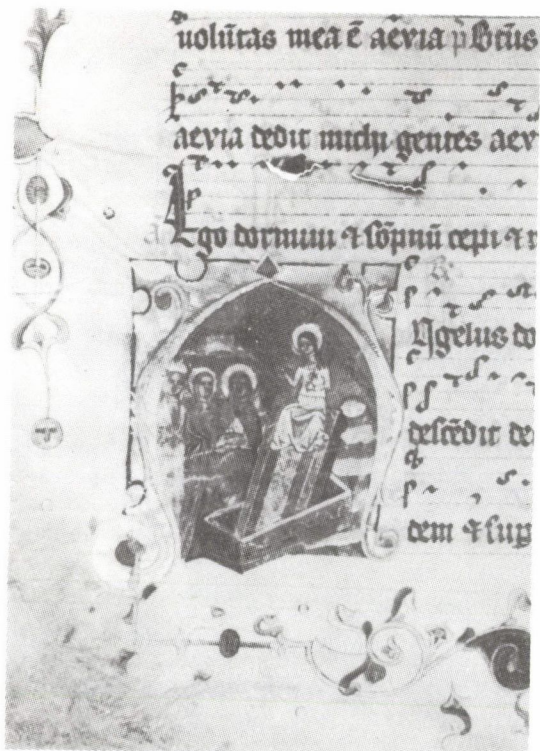 uolūtas mea ē aevia p̄ Btūs
aevia dedit michi gentes aev
Ego dormiui ⁊ sōpnū cepi ⁊ r
Ngelus do
descēdit de
dem ⁊ sup